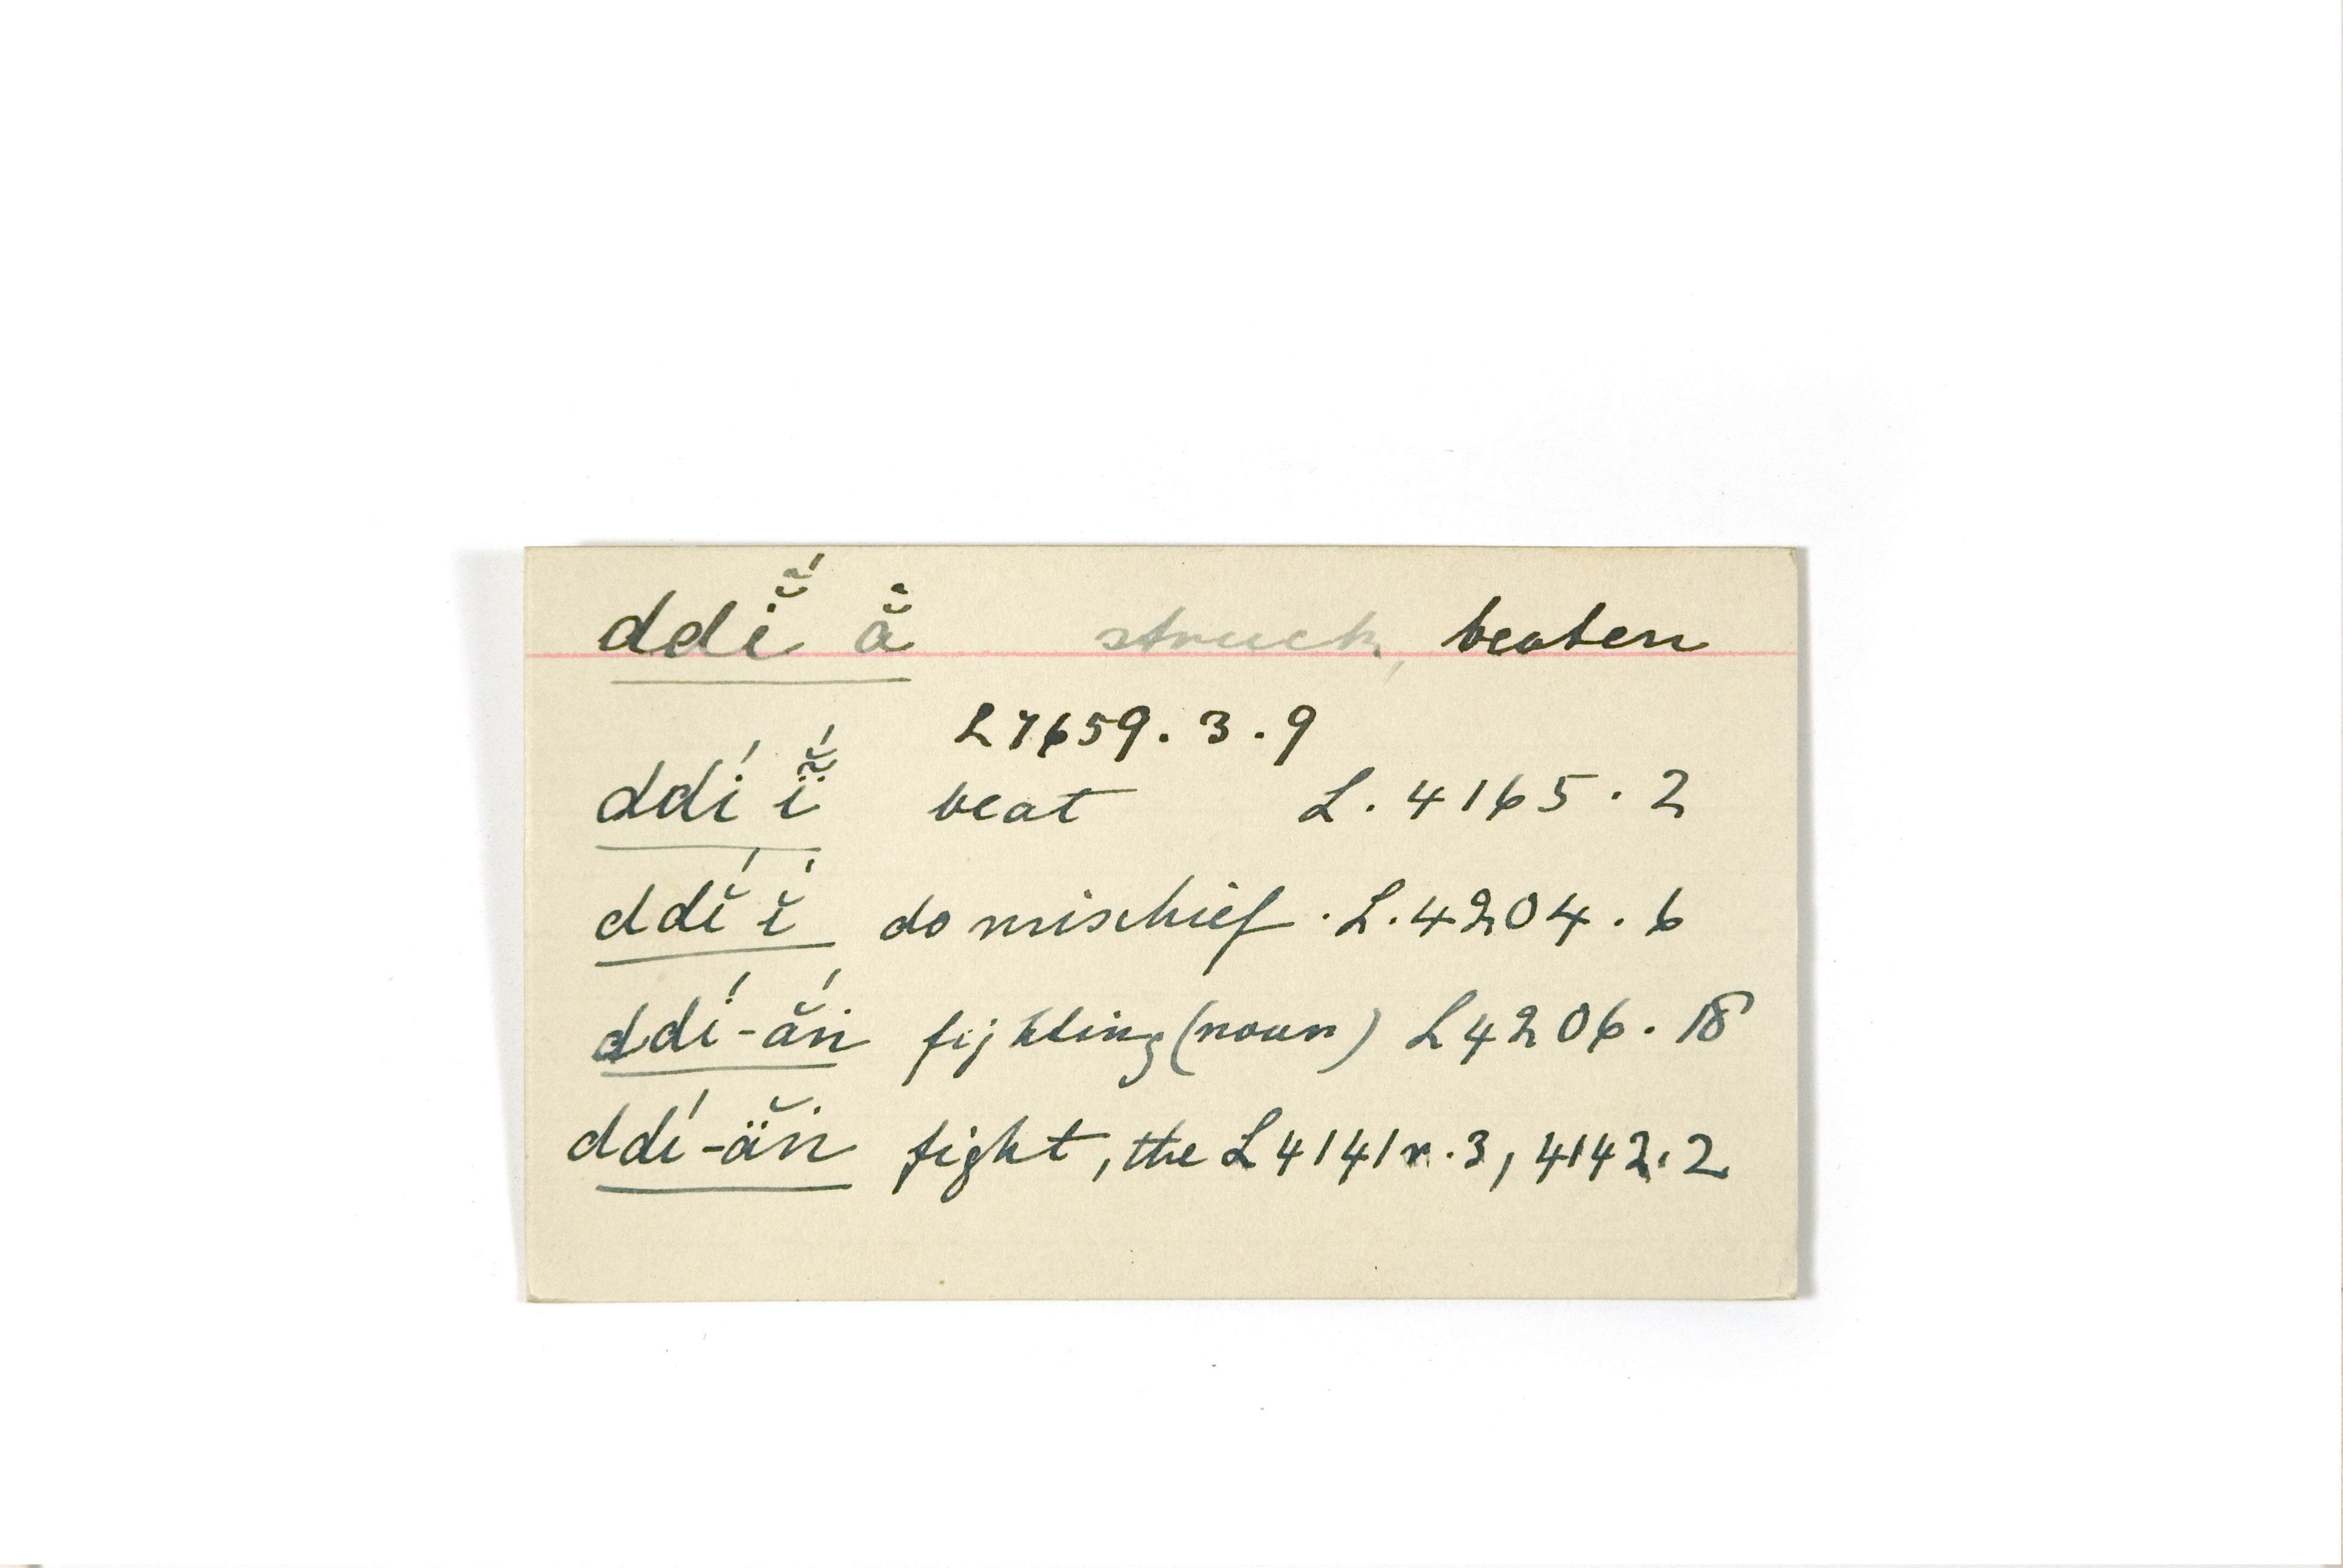 ddĭ̃́ ẵ struck, beaten
L7659.3.9
ddí ĭ̤̃́ beat L.4165.2
ddĭ́ ĭ́ do mischief. L.4204.6
ddí-ắn fighting (noun) L4206.18
ddí-ä̆n fight, the L4141r.3, 4142.2